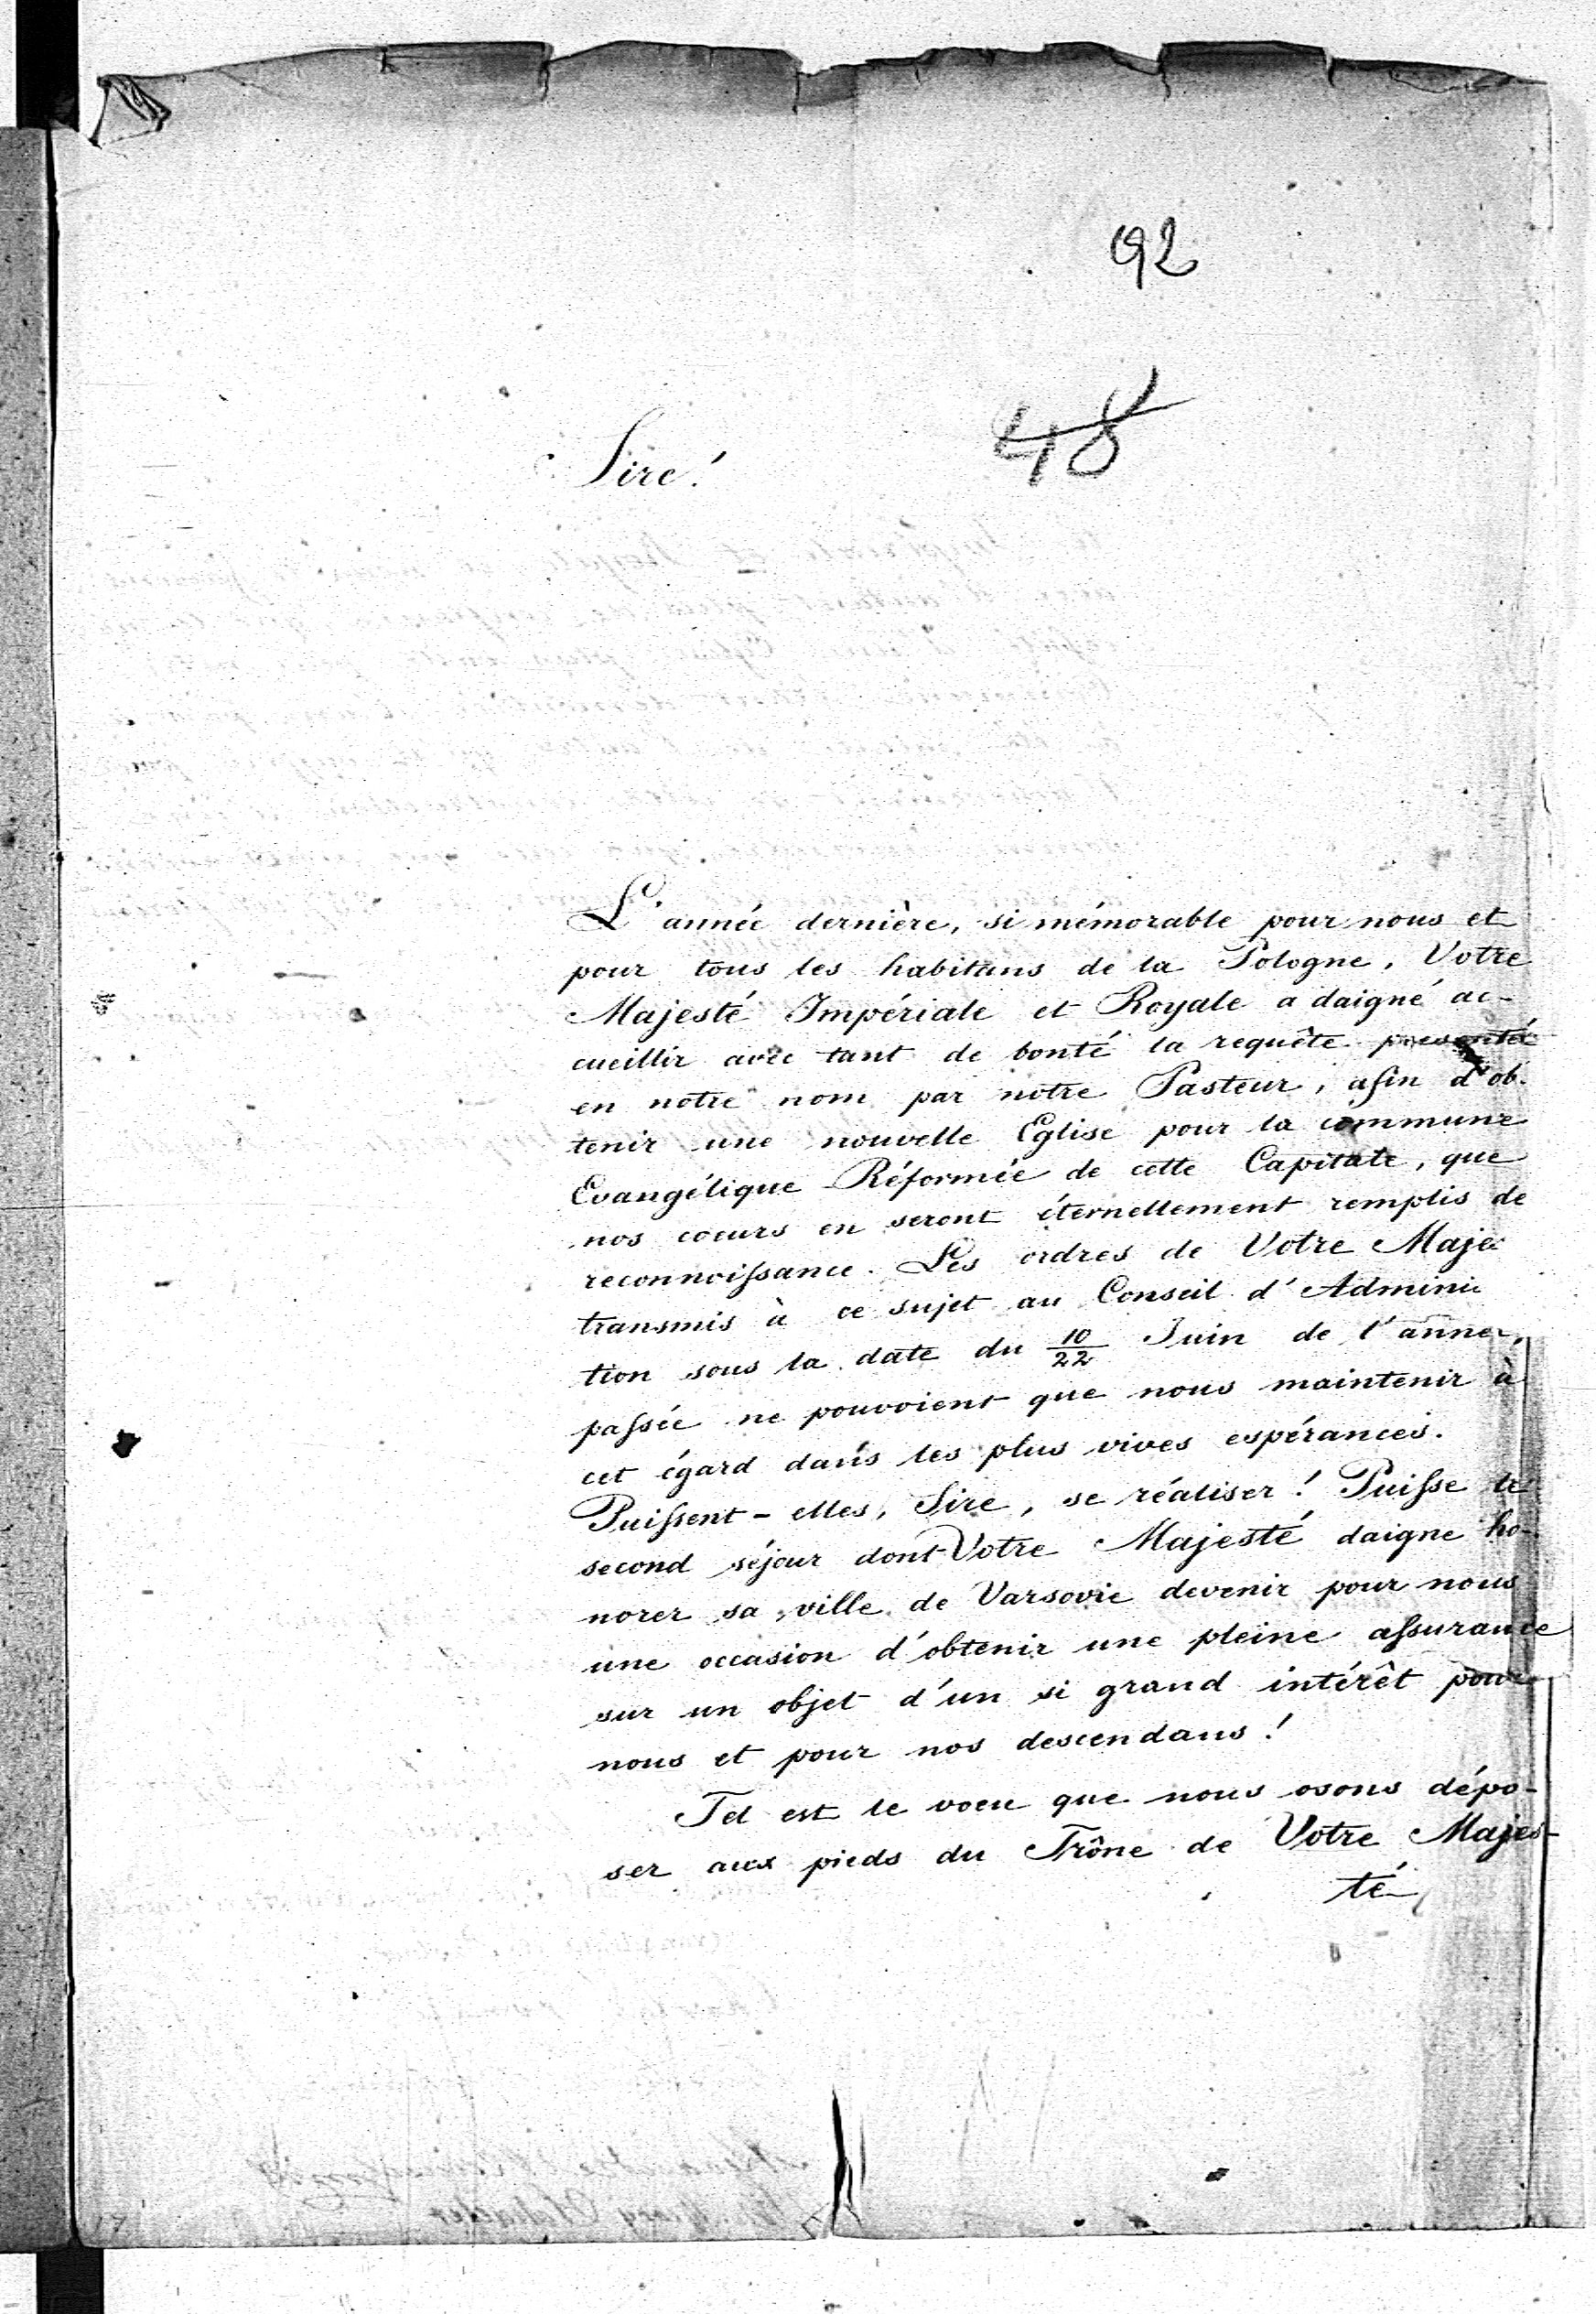 92
48
Sire!
L'année dernière, si mémorable pour nous et
pour tous les habitans de la Pologne, Votre
Majesté Impériale et Royale a daigné ac-
cueillir avec tant de bonté la requête presentée
en notre nom par notre Pasteur, afin d'ob-
tenir une nouvelle Eglise pour la commune
Evangélique Réformée de cette Capitale, que
nos coeurs en seront éternellement remplis de
reconnoiſsance. Les ordres de Votre Majes
transmis à ce sujet au Conseil d'Adminis
tion sous la date du 10/22 Juin de l'année
paſsée ne pouvoient que nous maintenir à
cet égard dans les plus vives espérances.
Puiſsent-elles, Sire, se réaliser! Puiſse le
second séjour dont Votre Majesté daigne ho-
norer sa ville de Varsovie devenir pour nous
une occasion d'obtenir une pleine aſsurance
sur un objet d'un si grand intérêt pour
nous et pour nos descendans!
Tel est le voeu que nous osons dépo-
ser aux pieds du Trône de Votre Majes-
té